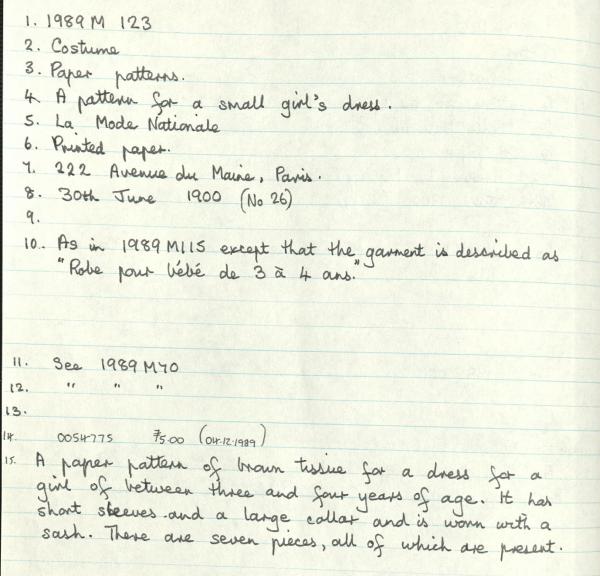 1. 1989 M 123
2. Costume
3. Paper patterns.
4. A pattern for a small girl's dress.
5. La Mode Nationale
6. Printed paper.
7. 222 Avenue du Maine, Paris.
8. 30th June 1900 (No 26)
9.
10. As in 1989 M115 except that the garment is described as
"Robe pour bébé de 3 à 4 ans."
11. See 1989 M70
12. " " "
13.
14. 0054775 75.00 (04.12.1989)
15. A paper pattern of brown tissue for a dress for a
girl of between three and four years of age. It has
short sleeves and a large collar and is worn with a
sash. There are seven pieces, all of which are present.